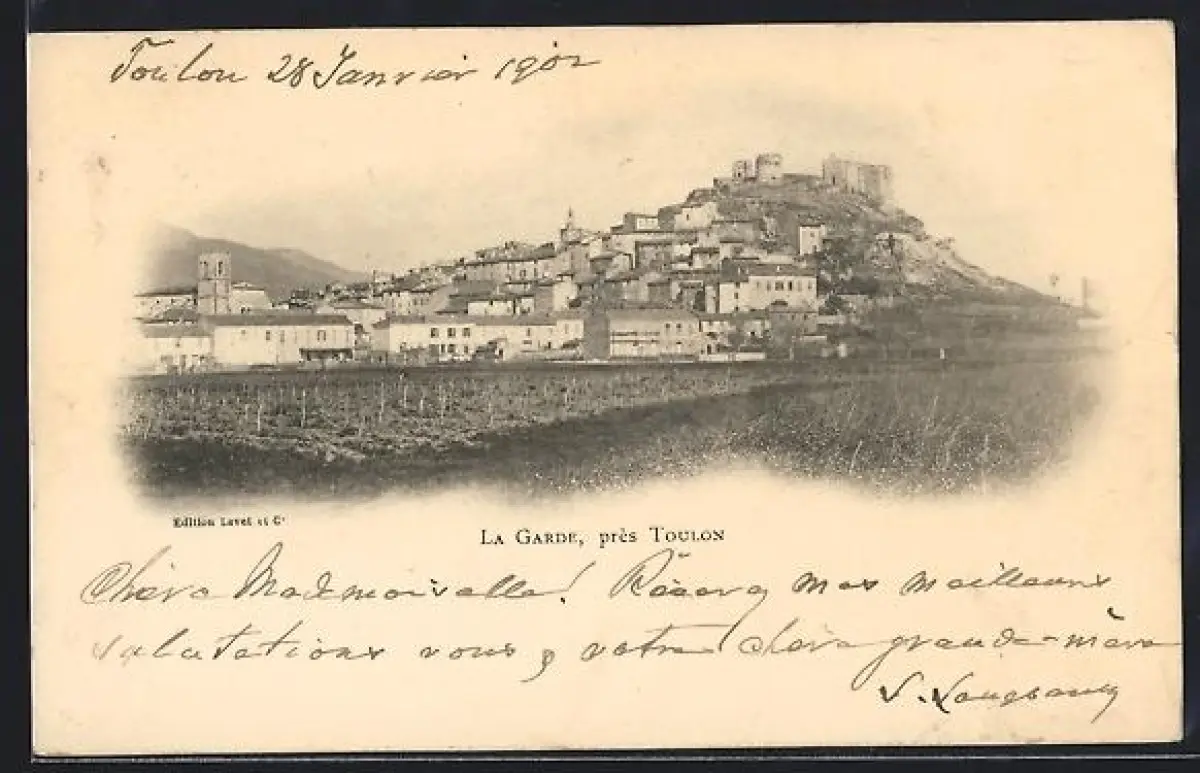 Toulon 28 Janvier 1902
Edition Lavet et Cie
LA GARDE, près TOULON
Chère Mademoiselle! Recevez mes meilleures
salutations vous & votre chère grande-mère